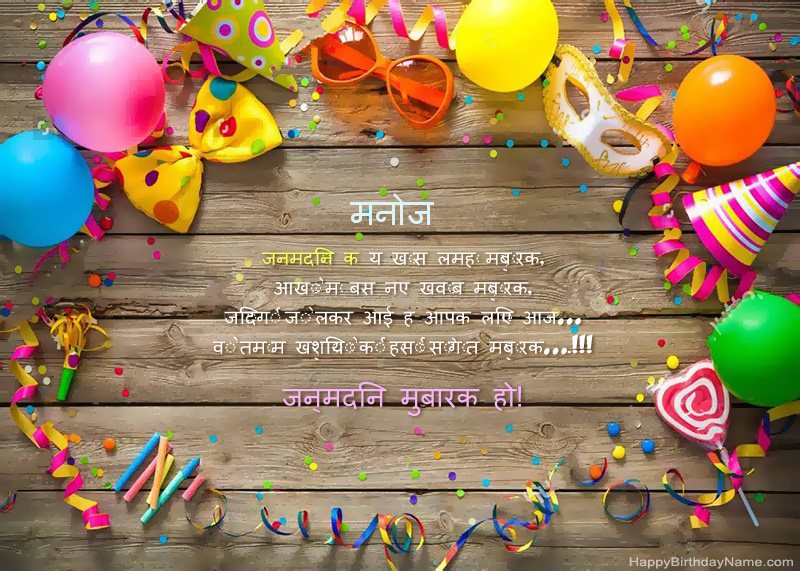 मनोज
जनमदनि क य खास लमहा मबारक,
आखों में बस नए खवाब मबारक,
जदिगी जो लेकर आई ह आपक लएि आज...
वो तमाम खशयिों की हसी सौगात मबारक...!!!
जन्मदनि मुबारक हो!
HappyBirthdayName.com